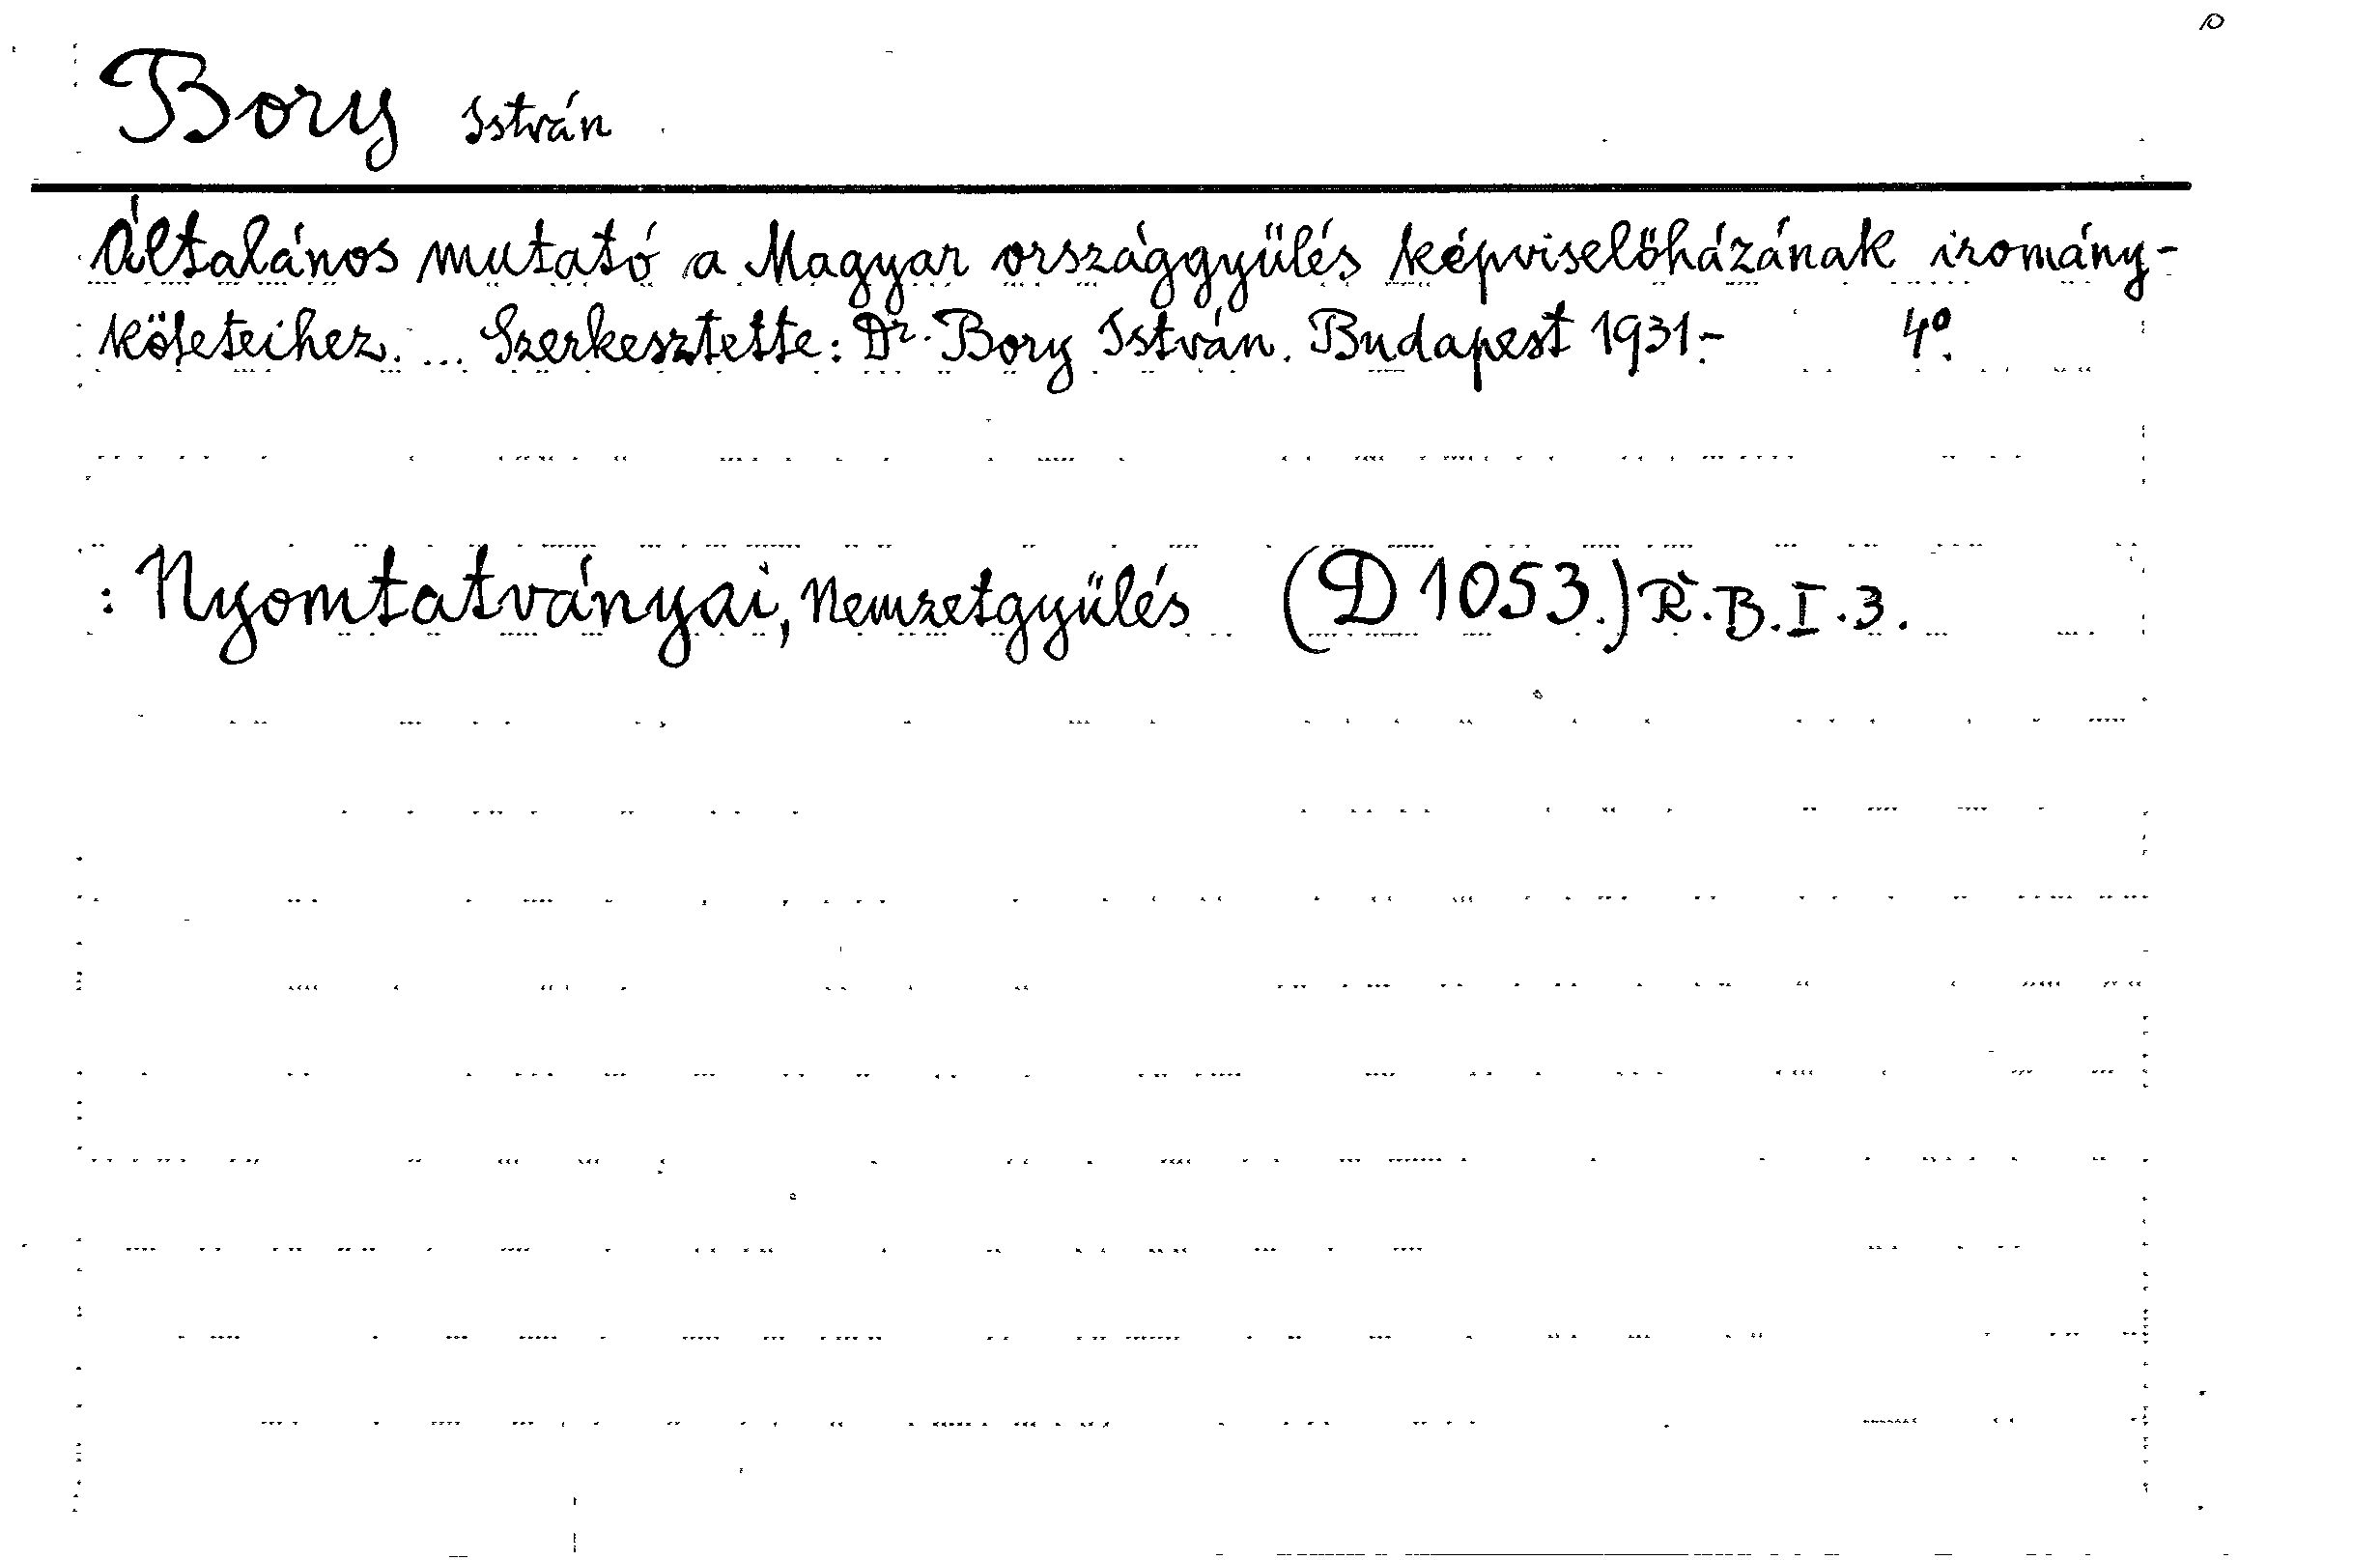 Bory István
Általános mutató a Magyar országgyülés képviselőházának iromány-
köteteihez. ... Szerkesztette: Dr. Bory István. Budapest 1931.- 4º.
: Nyomtatványai, Nemzetgyülés (D 1053.) R. B. I. 3.